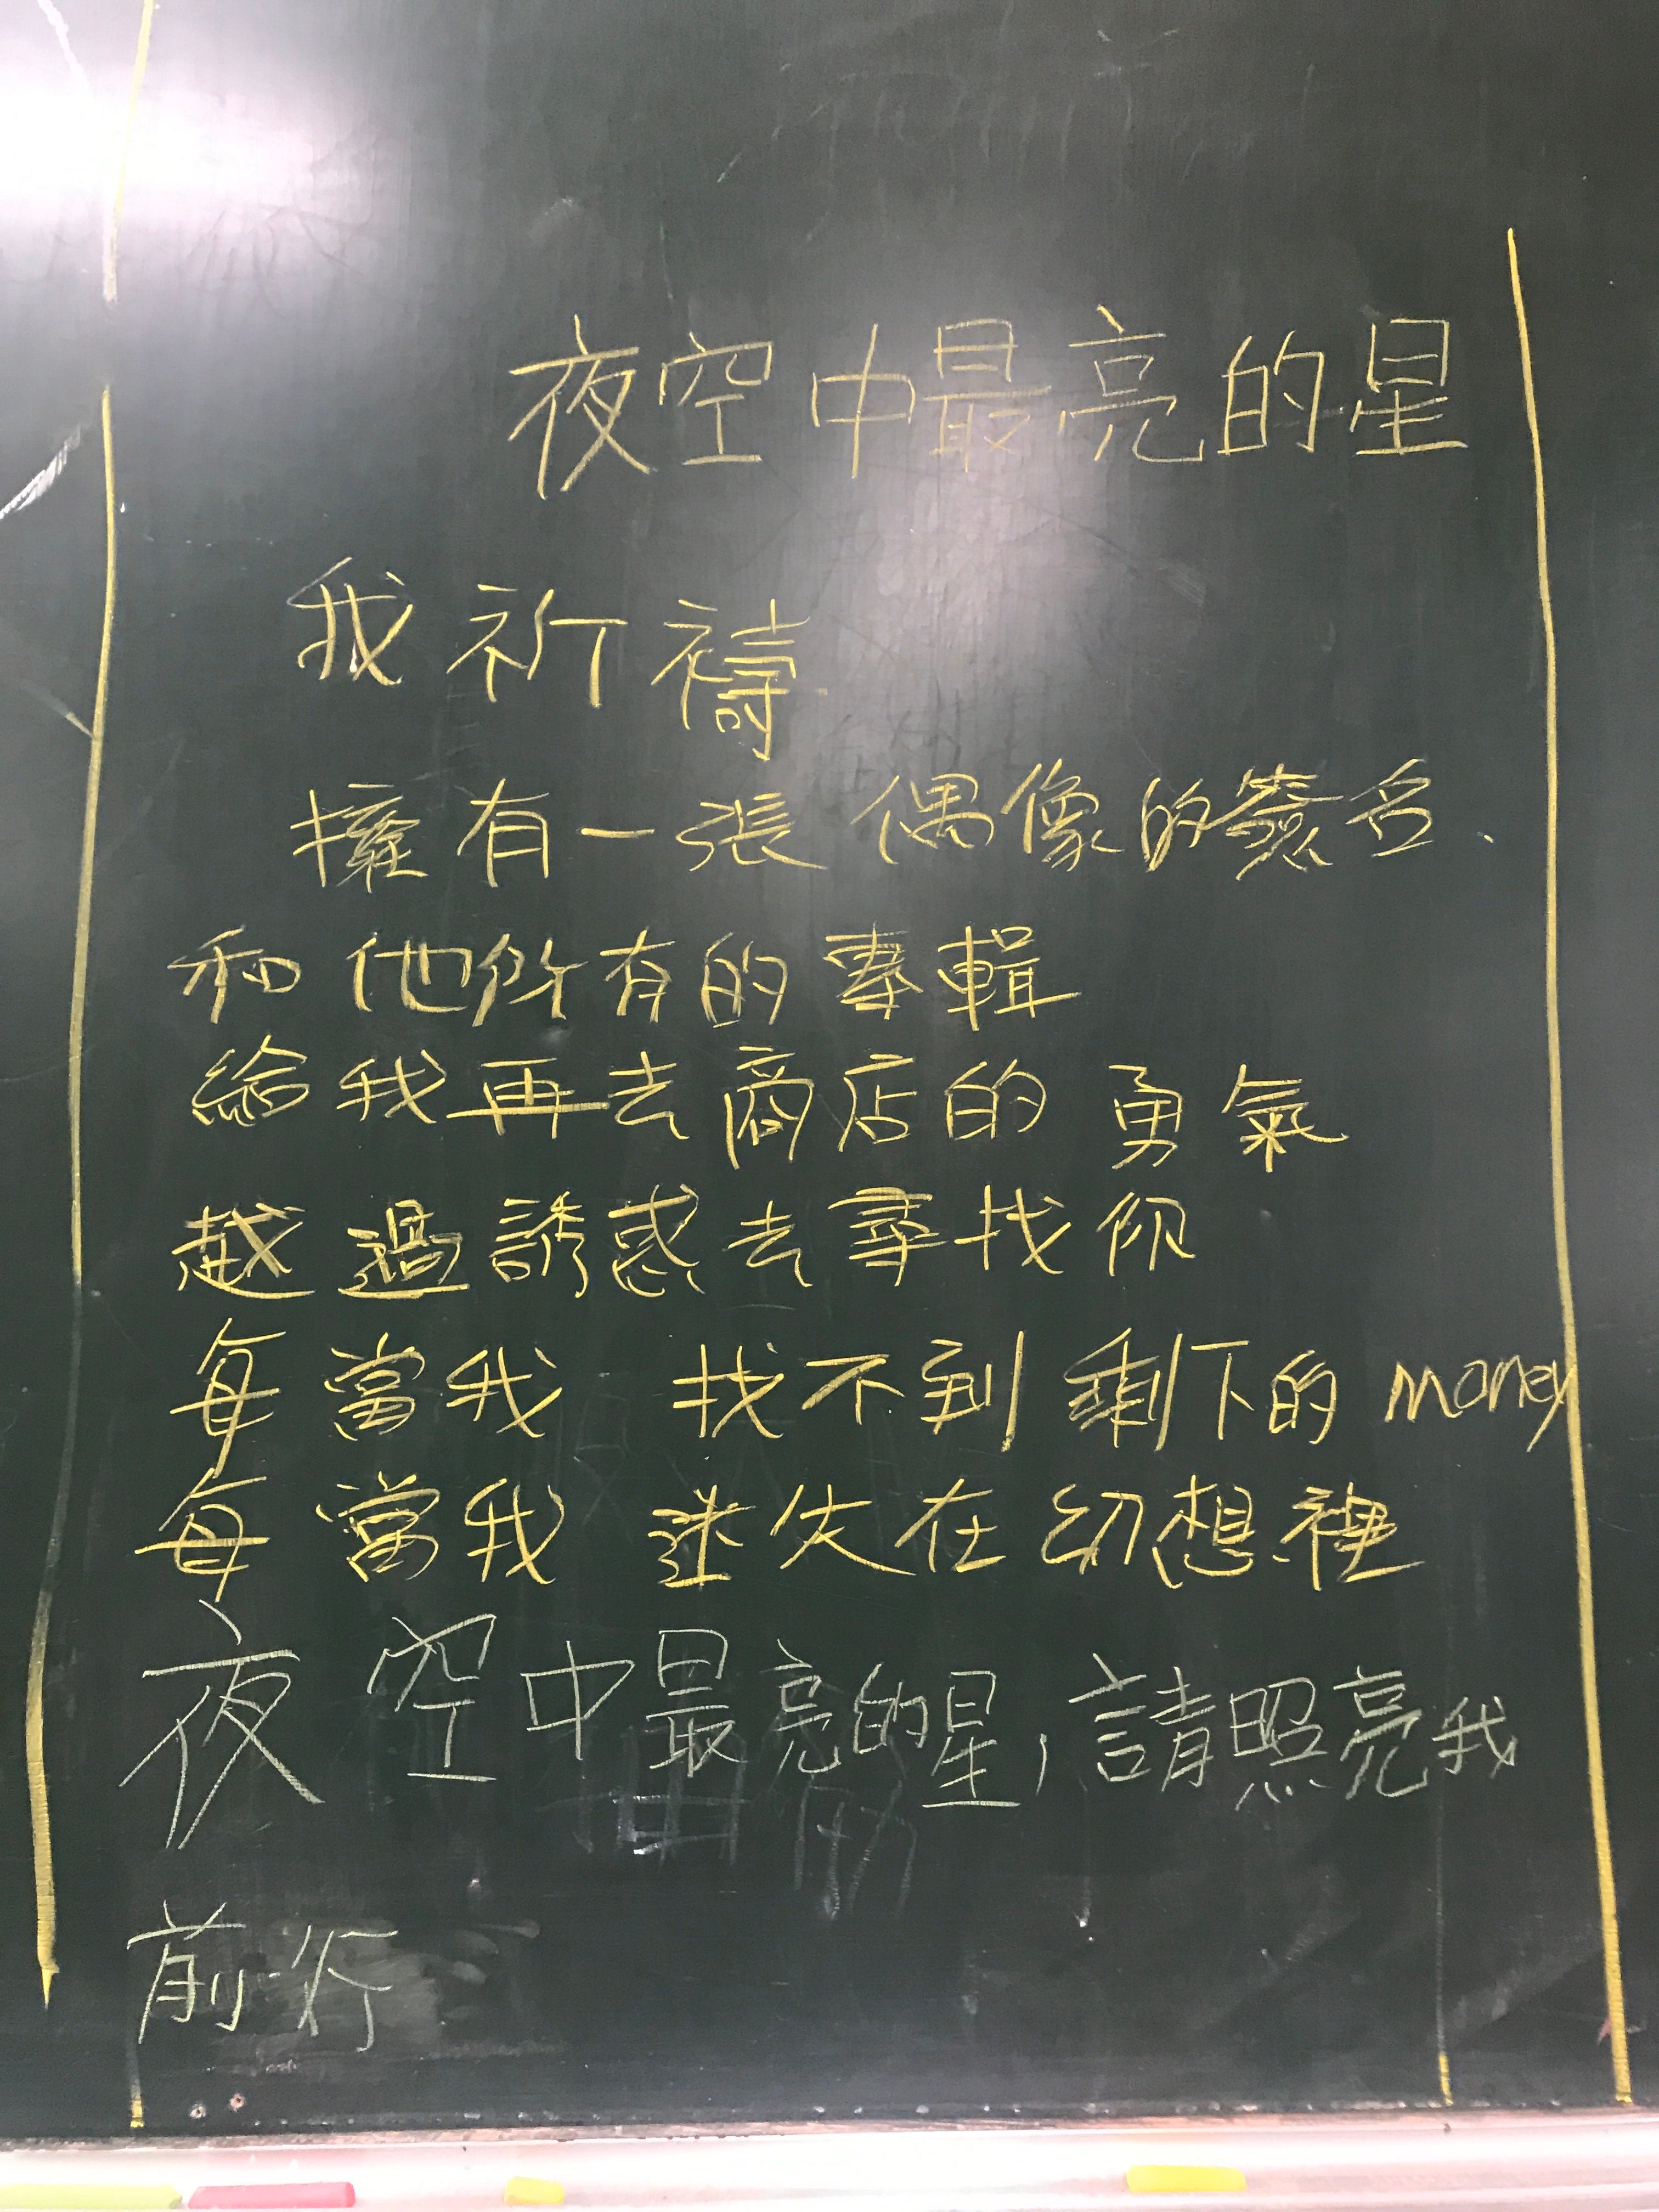 夜空中最亮的星
我祈禱
擁有一張偶像的簽名、
和他所有的專輯
給我再去商店的勇氣
越過誘惑去尋找你
每當我 找不到剩下的money
每當我 迷失在幻想裡
夜空中最亮的星,請照亮我
前行